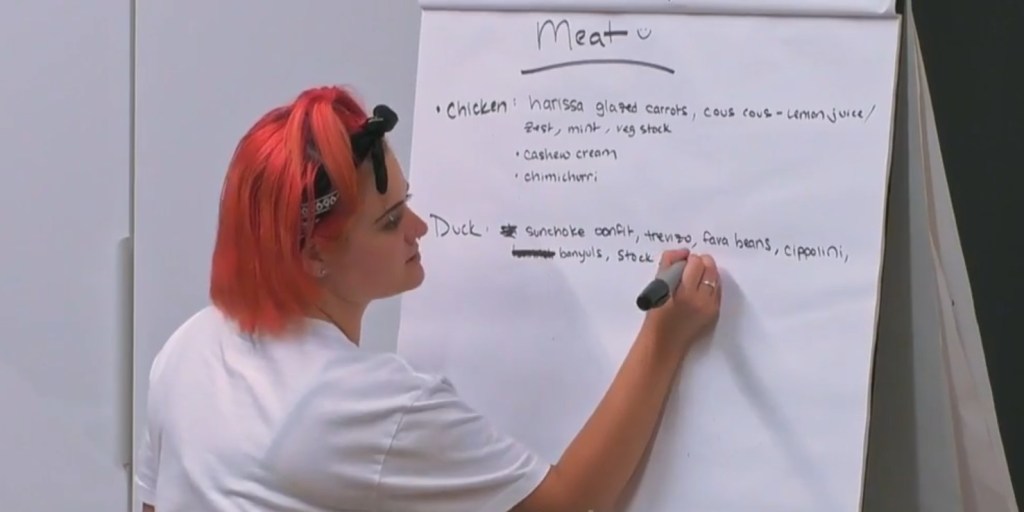 Meat
• Chicken: harissa glazed carrots, cous cous - Lemon juice/
Zest, mint, veg stock
• cashew cream
• chimichurri
Duck: sunchoke confit, trevizo, fava beans, cippolini,
banyuls, stock